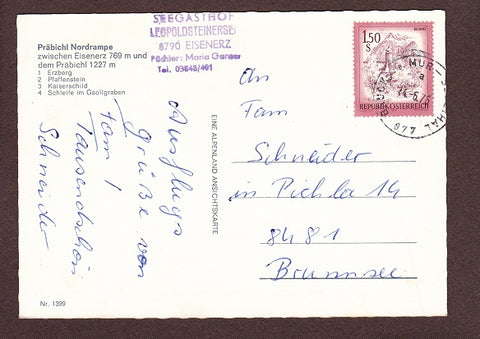 Präbichl Nordrampe
zwischen Eisenerz 769 m und
dem Präbichl 1227 m
1 Erzberg
2 Pfaffenstein
3 Kaiserschild
4 Schleife im Gsollgraben
SEEGASTHOF
LEOPOLDSTEINERSEE
8790 EISENERZ
Pächter: Maria
Tel. 03848/491
1.50
S
REPUBLIK ÖSTERREICH
MUR
TAL
a
An
Fam
Schneider
in Pichla 14
8481
Brunnsee
EINE ALPENLAND ANSICHTSKARTE
Ausflugs
grüße von
Fam
Tausendschön
Schneider
Nr. 1399